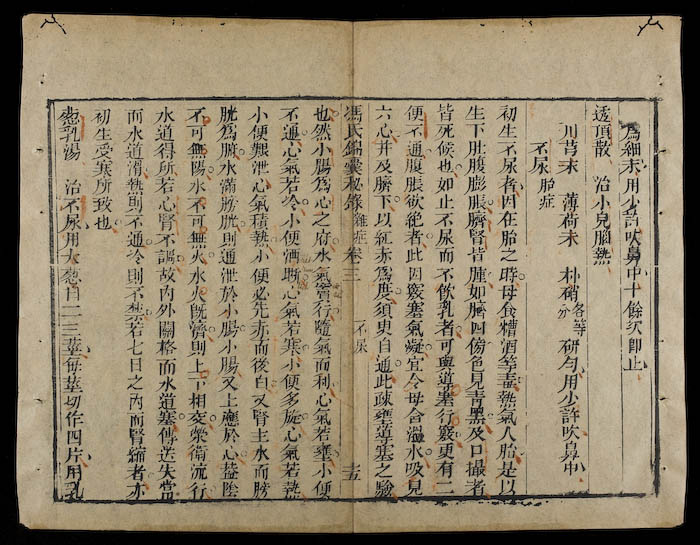 為細末用少許吹鼻中十餘次即止
透頂散 治小兒腦熱
川芎末 薄荷末 朴硝各等分 研勻用少許吹鼻中
不尿胎症
初生不尿者因在胎之時母食糟酒等毒熱氣人胎是以
生下肚腹膨脹臍腎皆腫如臍四傍色見青黑及口撮者
皆死候也如止不尿而不飲乳者可與導塞行竅更有二
便不通腹脹欲絕者此因竅塞氣凝宜令母含溫水吸見
六心并及臍下以紅赤為度須臾自通此疎壅導塞之驗
馮氏錦囊秘錄雜症卷三 不尿 十五
也然小腸為心之府水氣質行隨氣而利心氣若壅小便
不通心氣若冷小便洒淅心氣若寒小便多旋心氣若熱
小便艱泄心氣積熱小便必先赤而後白又腎主水而膀
胱為腑水滿膀胱則通泄於小腸小腸又上應於心蓋陰
不可無陽水不可無火水火旣濟則上下相交榮衛流行
水道得所若心腎不調故內外關格而水道塞傳送失常
而水道滑熱則不通冷則不禁若七日之內而腎縮者亦
初生受寒所致也
葱乳湯 治不尿用大葱白二三莖每莖切作四片用乳